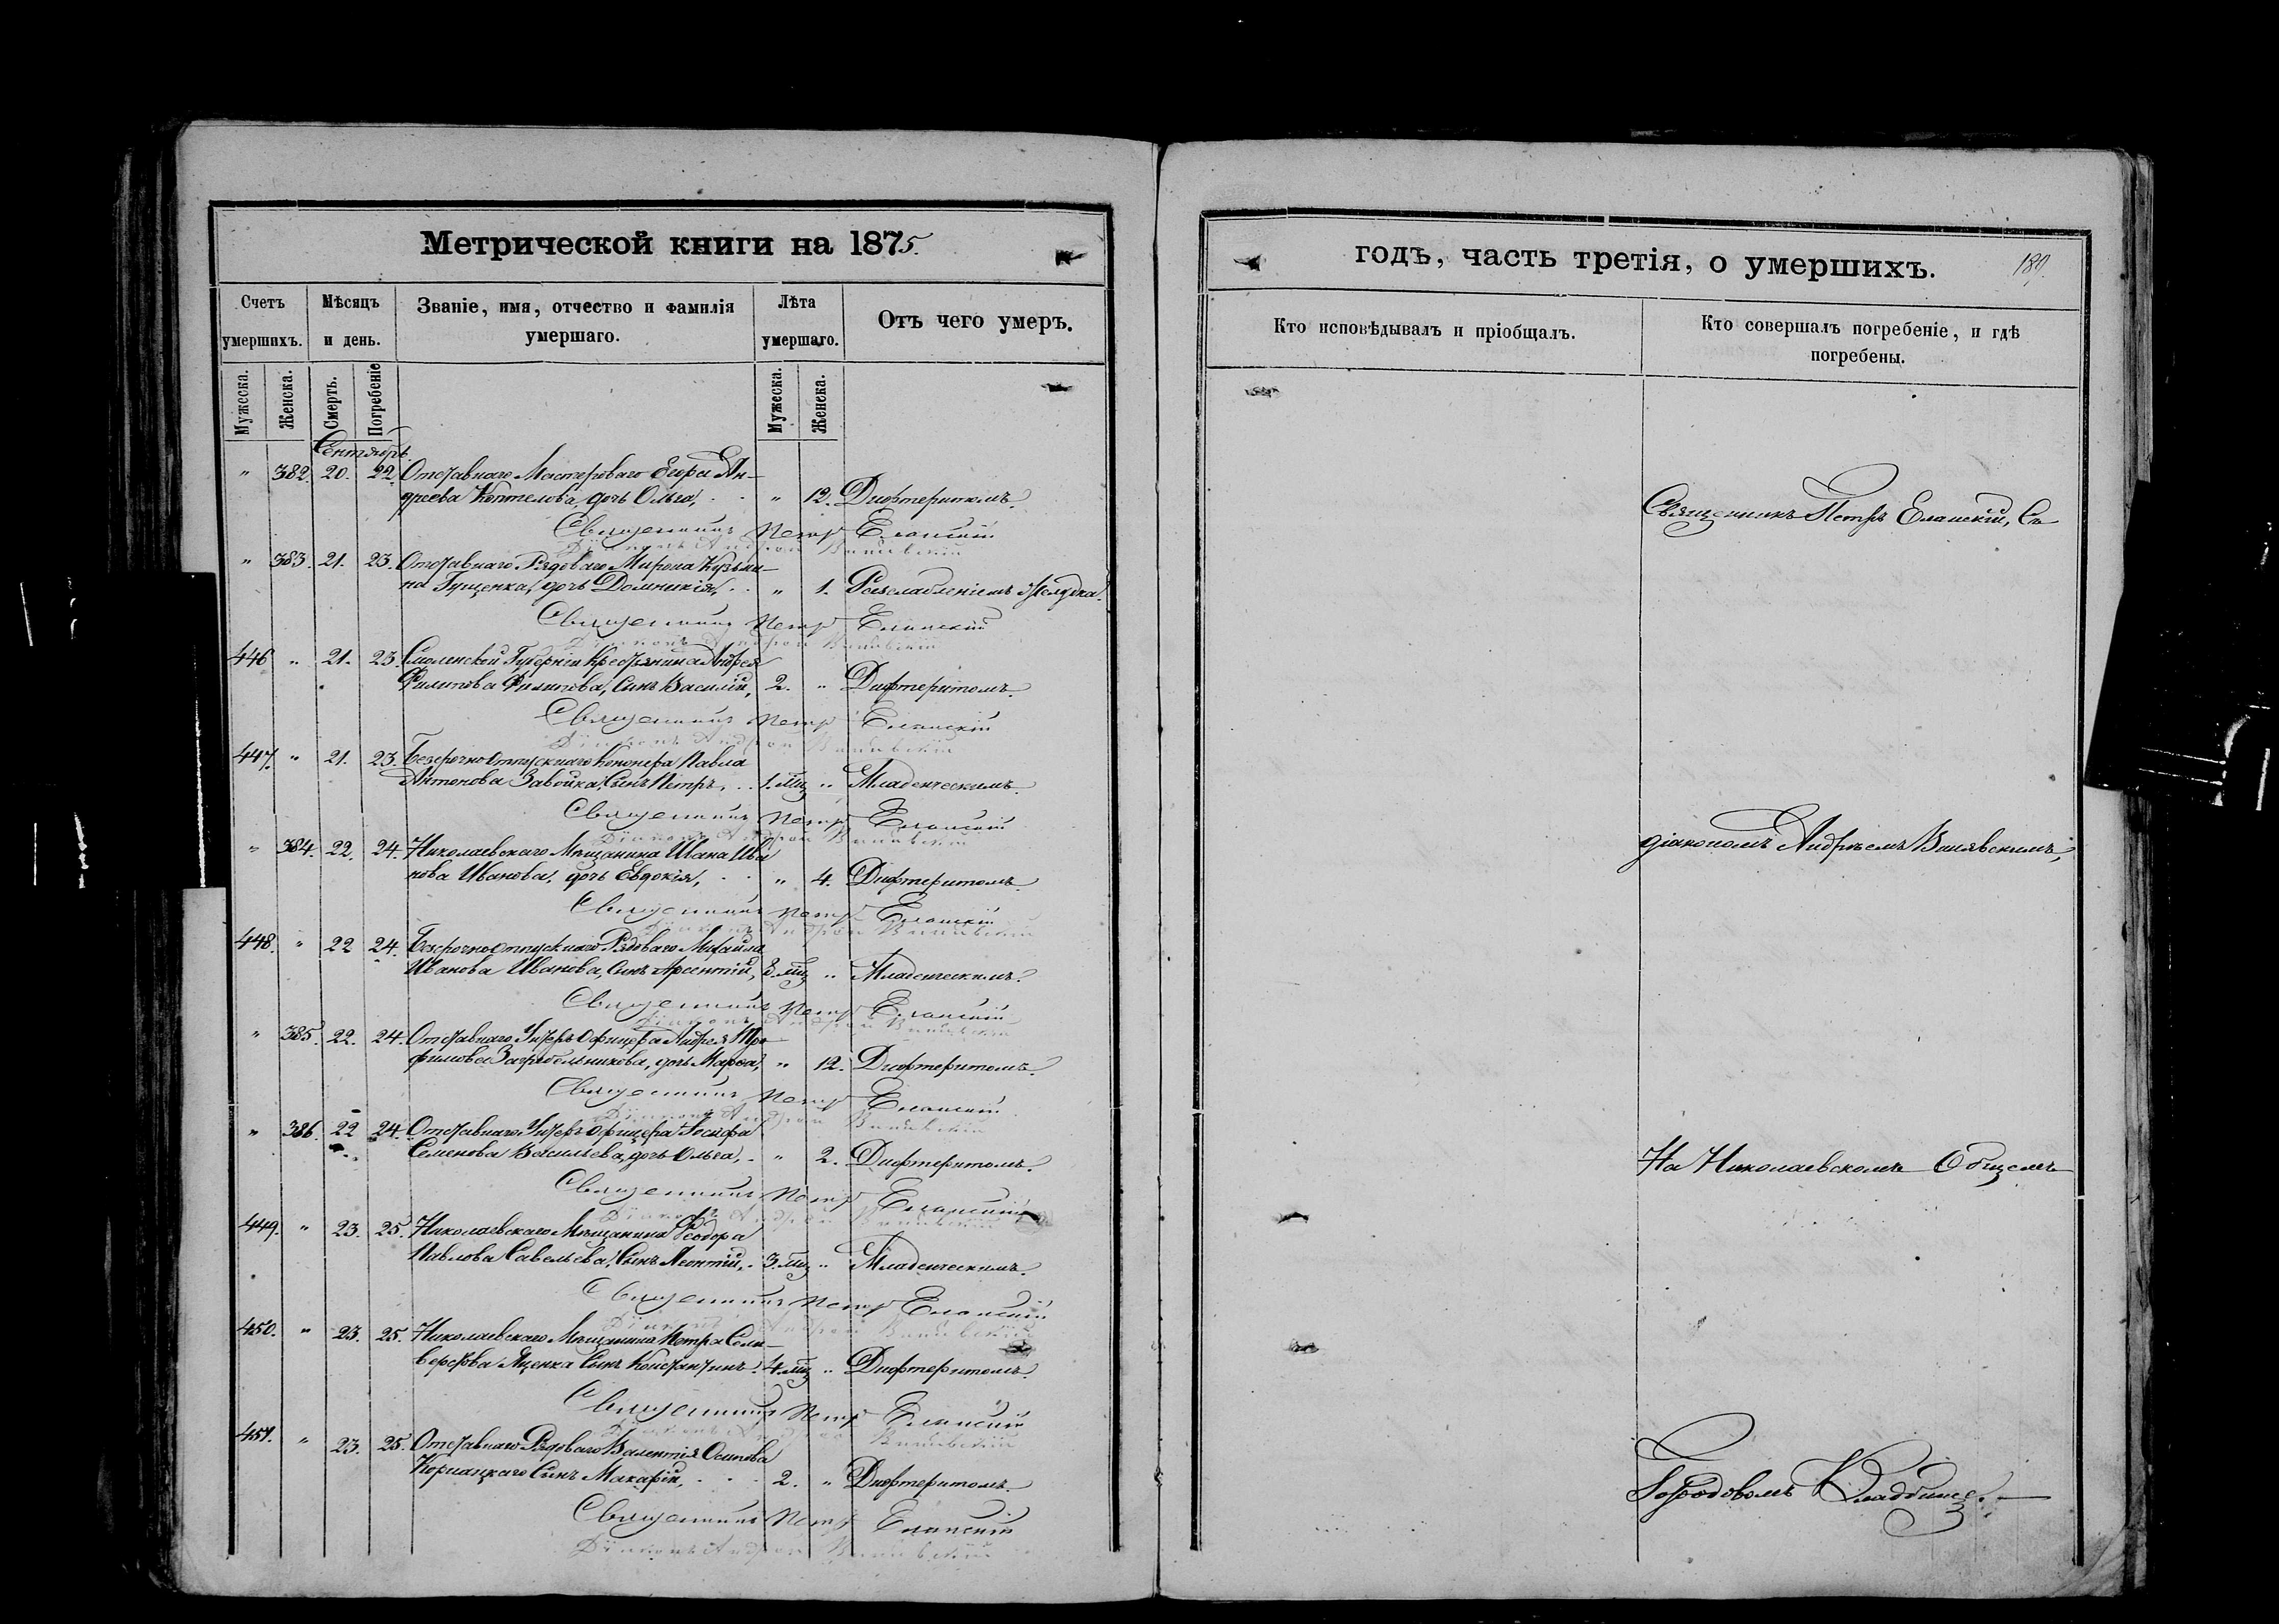 Метрической книги на 1875.
Счетъ умершихъ.
Мѣсяцъ и день.
Званіе, имя, отчество и фамилія умершаго.
Лѣта умершаго.
Отъ чего умеръ.
Мужеска. Женска. Смерть. Погребеніе Мужеска. Женска.
Сентябрь
" 382. 20. 22. Отставнаго Мастероваго Егора Ан-
дреева Коптелова, дочь Ольга, " 12. Дифтеритомъ.
Священникъ Петръ Еланскій
Діаконъ Андрей
" 383. 21. 23. Отставнаго Рядоваго Мирона Кузьми-
на Гущенка, дочь Домникія, " 1. Разслабленіемъ желудка.
Священникъ Петръ Еланскій
Діаконъ Андрей
446 " 21. 23. Смоленской Губерніи Крестьянина Андрея
Филипова Филипова, Сынъ Василій, 2. " Дифтеритомъ.
Священникъ Петръ Еланскій
Діаконъ Андрей
447. " 21. 23. Безсрочноотпускнаго Канонера Павла
Антонова Завойка, Сынъ Петръ, 1. мц " Младенческимъ.
Священникъ Петръ Еланскій
Діаконъ Андрей
" 384. 22. 24. Николаевскаго Мѣщанина Ивана Ива
нова Иванова, дочь Евдокія, " 4. Дифтеритомъ.
Священникъ Петръ Еланскій
Діаконъ Андрей
448. " 22 24. Безсрочноотпускнаго Рядоваго Михаила
Иванова Иванова, Сынъ Арсентій, мц " Младенческимъ.
Священникъ Петръ Еланскій
Діаконъ Андрей
" 385. 22. 24. Отставнаго Унтеръ Офицера Андрея Тро
фимова Загребельникова, дочь Марѳа, " 12. Дифтеритомъ.
Священникъ Петръ Еланскій
Діаконъ Андрей
" 386. 22 24. Отставнаго Унтеръ Офицера Іосифа
Семенова Васильева, дочь Ольга, " 2. Дифтеритомъ.
Священникъ Петръ Еланскій
Діаконъ Андрей
449. " 23. 25. Николаевскаго Мѣщанина Ѳеодора
Павлова Савельева, Сынъ Леонтій, 3. мц " Младенческимъ.
Священникъ Петръ Еланскій
Діаконъ Андрей
450. " 23. 25. Николаевскаго Мѣщанина Петра Сели-
верстова Яценка Сынъ Константинъ. 4. мц " Дифтеритомъ.
Священникъ Петръ Еланскій
Діаконъ Андрей
451. " 23. 25. Отставнаго Рядоваго Валентія Осипова
Сынъ Макарій, 2. " Дифтеритомъ.
Священникъ Петръ Еланскій
Діаконъ Андрей
годъ, часть третія, о умершихъ.
189.
Кто исповѣдывалъ и пріобщалъ.
Кто совершалъ погребеніе, и гдѣ погребены.
Священникъ Петръ Еланскій, Съ
діакономъ Андреемъ
На Николаевскомъ Общемъ
Городовомъ Кладбище.